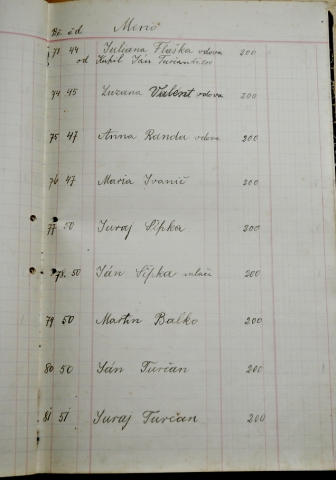 Bč. čd Meno
73 44 Juliana Fľaška vdova 200
od Kupil Ján Turčan
74 45 Zuzana Valent vdova 200
75 47 Anna Randa vdova 200
76 47 Maria Ivanič 200
77 50 Juraj Šípka 200
78. 50 Ján Šípka mladší 200
79 50 Martin Balko 200
80 50 Ján Turčan 200
81 51 Juraj Turčan 200